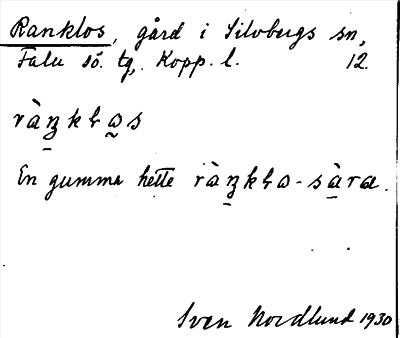 Ranklos, gård i Silvbergs sn,
Falu sö. tg, Kopp. l. 12.
En gumma hette
Sven Nordlund 1930